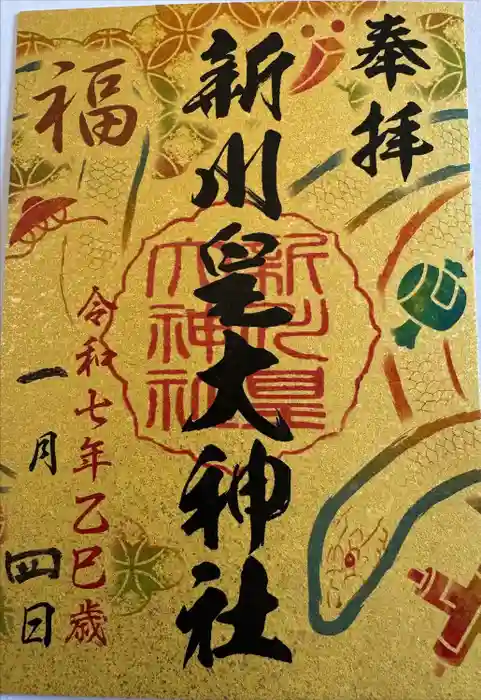 奉拝
新川皇大神社
福
令和七年乙巳歳
一月四日
新川皇
大神社